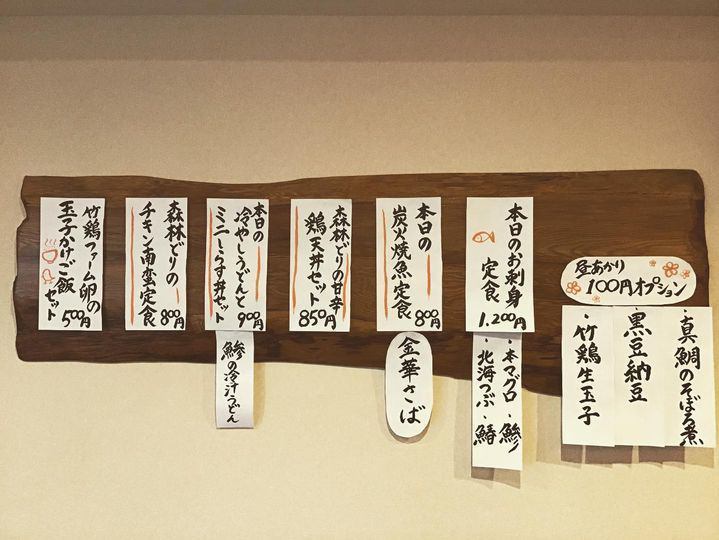 真鯛のそぼろ煮
黒豆納豆
竹鶏生玉子
昼あかり
100円オプション
本日のお刺身
定食
1.200円
・本マグロ・鯵
・北海つぶ・鰆
本日の
炭火焼魚定食
800円
金華さば
森林どりの甘辛
鶏天丼セット
850円
本日の
冷やしうどんと
ミニしらす丼セット
900円
鯵の冷汁うどん
森林どりの
チキン南蛮定食
800円
竹鶏ファーム卵の
玉子かけご飯
セット
500円